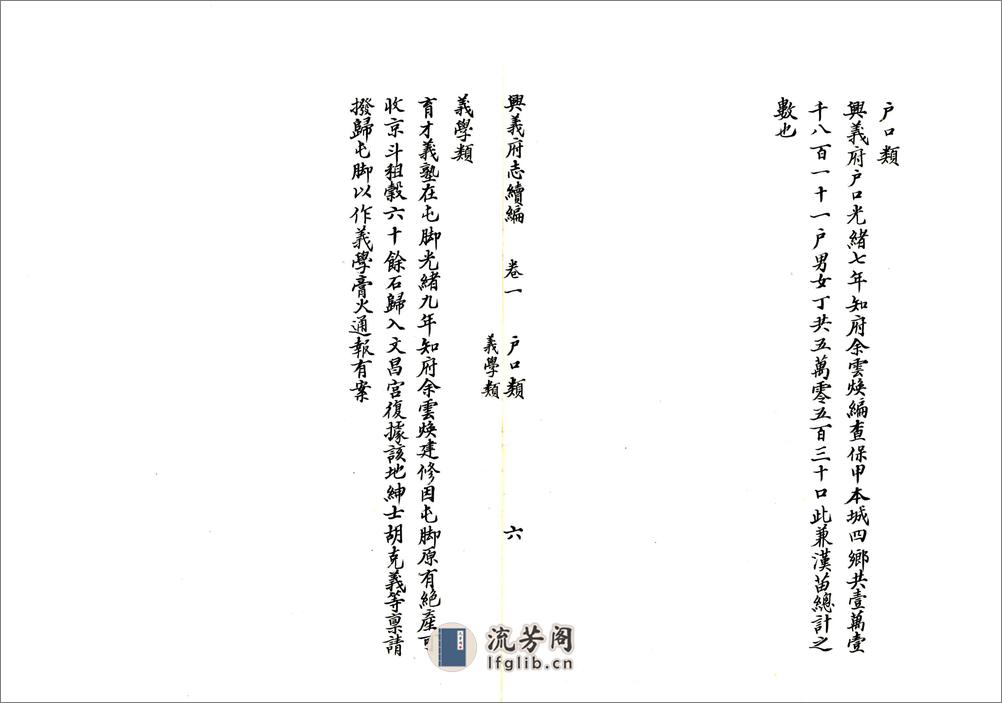 戶口類
興義府戶口光緒七年知府余雲煥編查保甲本城四鄉共壹萬壹
千八百一十一戶男女丁共五萬零五百三十口此兼漢苗總計之
數也
興義府志續編 卷一 戶口類 義學類 六
義學類
育才義塾在屯脚光緒九年知府余雲煥建修因屯脚原有絕產可
收京斗租穀六十餘石歸入文昌宮復據該地紳士胡克義等禀請
撥歸屯脚以作義學膏火通報有案
流芳阁
lfglib.cn